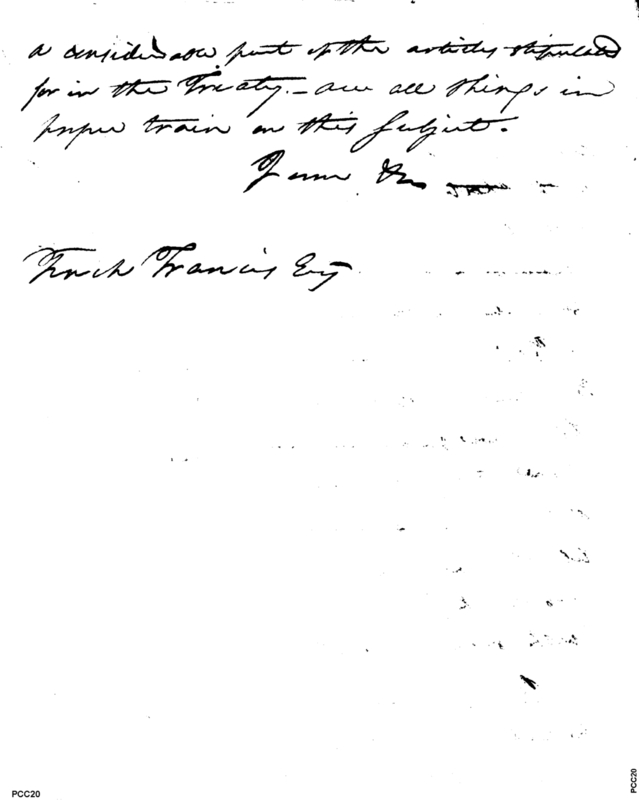 a considerable part of the articles stipulated
for in the Treaty – are all things in
proper train on this Subject.
I am &c
Tench Francis Esq
PCC20
PCC20